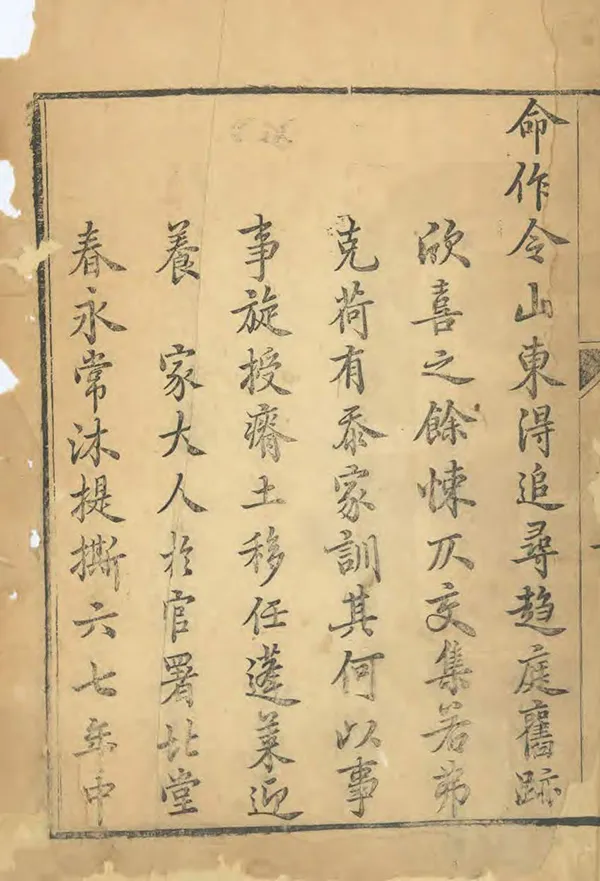 命作令山東得追尋趋庭舊跡
欣喜之餘悚仄交集若弗
克荷有忝家訓其何以事
事旋授瘠土移任蓬萊迎
養 家大人於官署北堂
春永常沐提撕六七年中